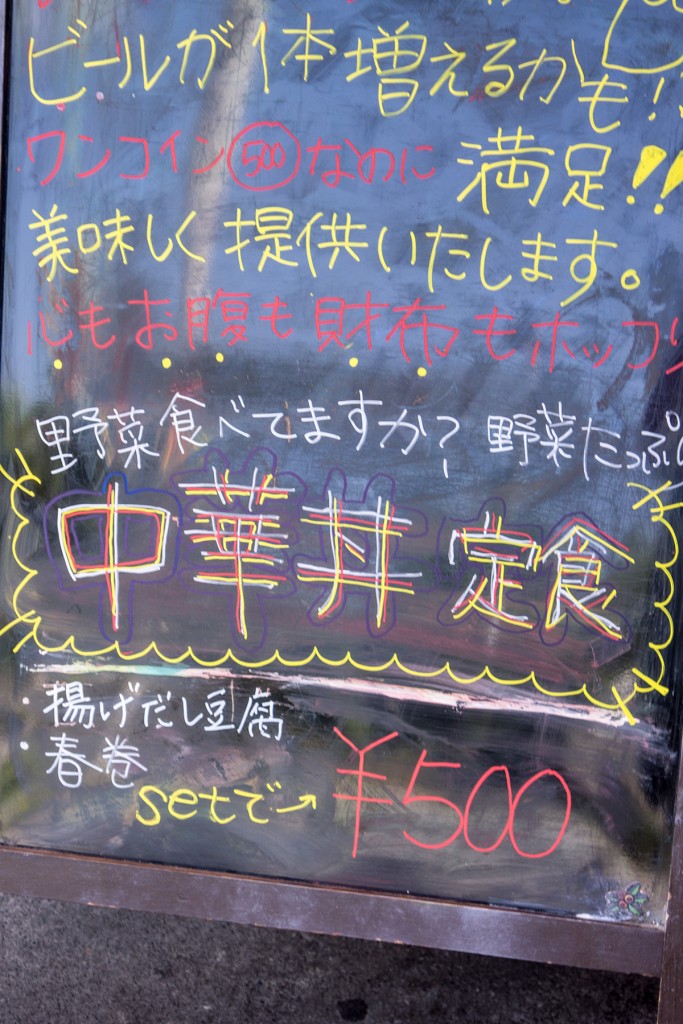 ビールが1本増えるかも!
ワンコイン500なのに 満足!!
美味しく提供いたします。
心もお腹も財布もホッコリ
野菜食べてますか? 野菜たっぷり
中華丼 定食
・揚げだし豆腐
・春巻
setで→ ¥500